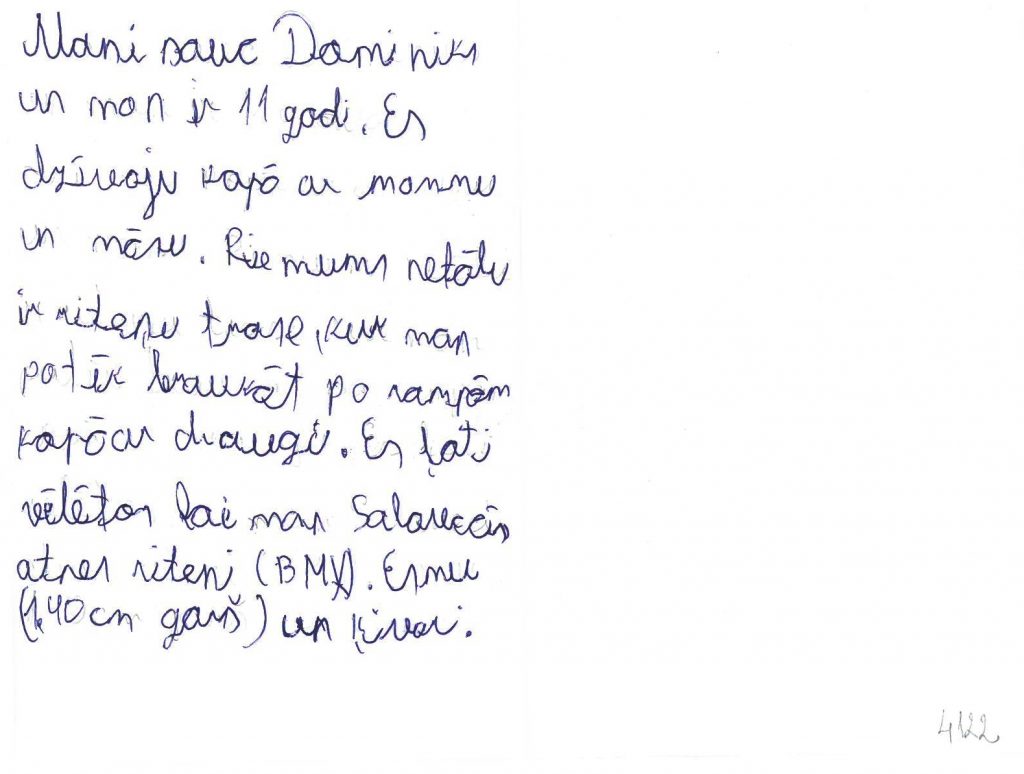 Mani sauc Dominiks
un man ir 11 godi. Es
dzīvoju kopā ar mammu
un māsu. Pie mums netālu
ir riteņu trase, kur man
patīk braukāt pa rampām
kopā ar draugi. Es ļoti
vēlētos lai man Salavecis
atnes riteni (BMX). Esmu
(1.40cm garš) un ķivari.
4122